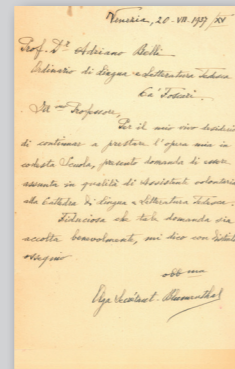 Venezia, 20-VII-1937/XV
Prof. Dr Adriano Belli
Ordinario di Lingua e Letteratura Tedesca
Ca' Foscari.
Ill.mo Professore,
Per il mio vivo desiderio
di continuare a prestare l'opera mia in
codesta Scuola, presento domanda di essere
assunta in qualità di Assistente volontaria
alla Cattedra di Lingua e Letteratura Tedesca.
Fiduciosa che tale domanda sia
accolta benevolmente, mi dico con distinto
ossequio
obb.ma
Olga Blumenthal